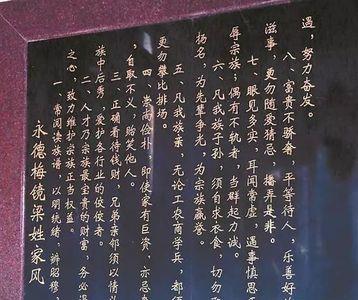 永德梅镜梁姓家风
一、常阅读族谱，以明统绪，辨昭穆，
之心，致力维护宗族正当权益。
二、人才乃宗族最宝贵的财富，务必
族中后秀，爱护各行业的佼佼者。
三、正确看待钱财，兄弟亲邻须以情
，自取不义，贻笑他人。
四、崇尚俭朴，即使家有巨资，亦忌
更勿攀比排场。
五、凡我族亲，无论工农商学兵，都
扬名，为先辈争光，为宗族赢誉。
六、凡我族子孙，须自求衣食，切勿
辱宗族；偶有不轨者，当群起力诫。
七、眼见多实，耳闻常虚，遇事慎思
滋事，更勿随爱猜忌，播弄是非。
八、富贵不骄奢，平等待人，乐善好
遇，努力奋发。